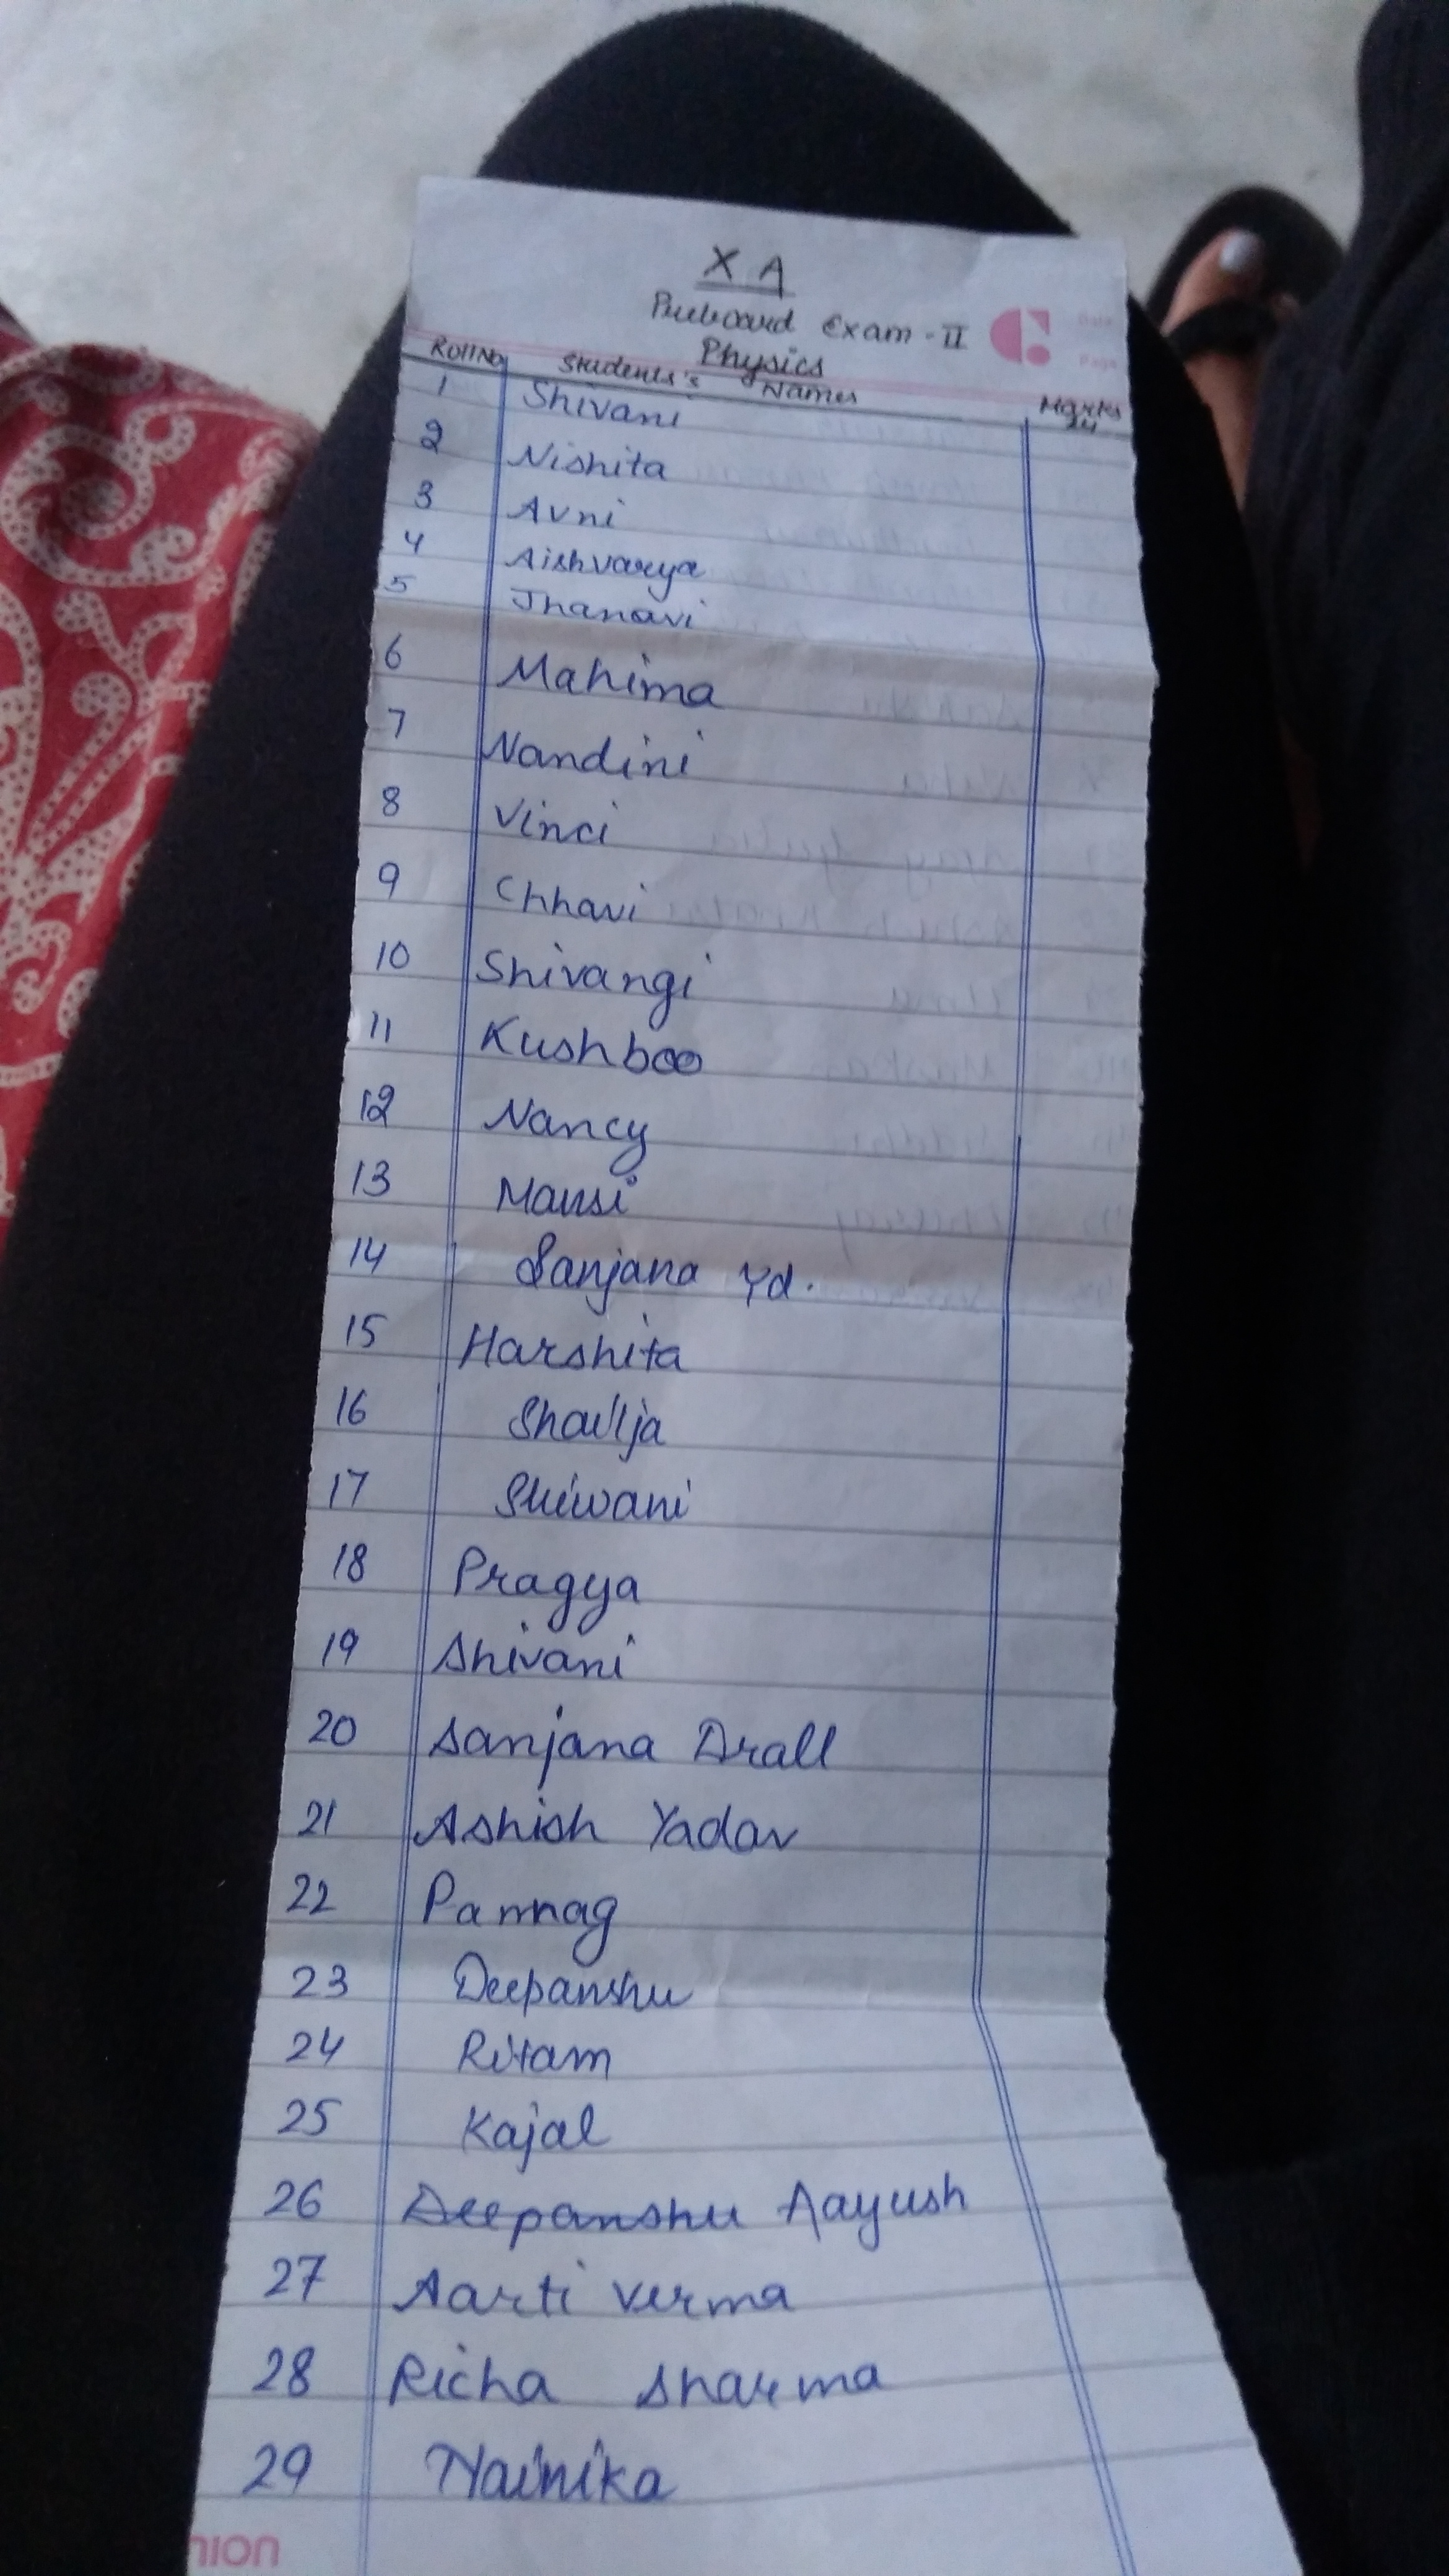 X A
Preboard Exam - II
Physics
Roll No Students's Names Marks
1 Shivani 24
2 Nishita
3 Avni
4 Aishvarya
5 Jhanavi
6 Mahima
7 Nandini
8 Vinci
9 Chhavi
10 Shivangi
11 Kushboo
12 Nancy
13 Mansi
14 Sanjana Yd.
15 Harshita
16 Shailja
17 Shiwani
18 Pragya
19 Shivani
20 Sanjana Drall
21 Ashish Yadav
22 Pannag
23 Deepanshu
24 Ritam
25 Kajal
26 Deepanshu Aayush
27 Aarti Verma
28 Richa Sharma
29 Nainika